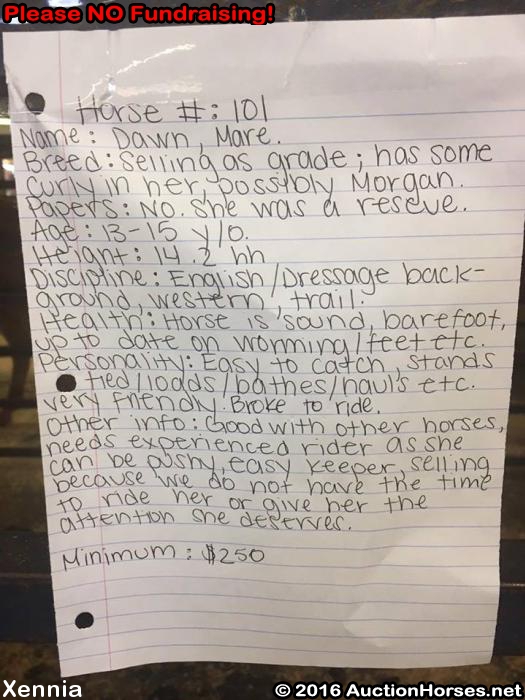 Please NO Fundraising!
Horse #: 101
Name: Dawn, Mare.
Breed: Selling as grade; has some
curly in her, possibly Morgan.
Papers: No. She was a reseve.
Age: 13-15 y/o.
Height: 14.2 hh
Discipline: English/Dressage back-
ground, western, trail.
Health: Horse is sound, barefoot,
up to date on worming/feet etc.
Personality: Easy to catch, stands
tied/loads/bathes/haul's etc.
very friendly. Broke to ride.
Other info: Good with other horses,
needs experienced rider as she
can be pushy, easy keeper, selling
because we do not have the time
to ride her or give her the
attention she deserves.
Minimum: $250
Xennia
© 2016 AuctionHorses.net